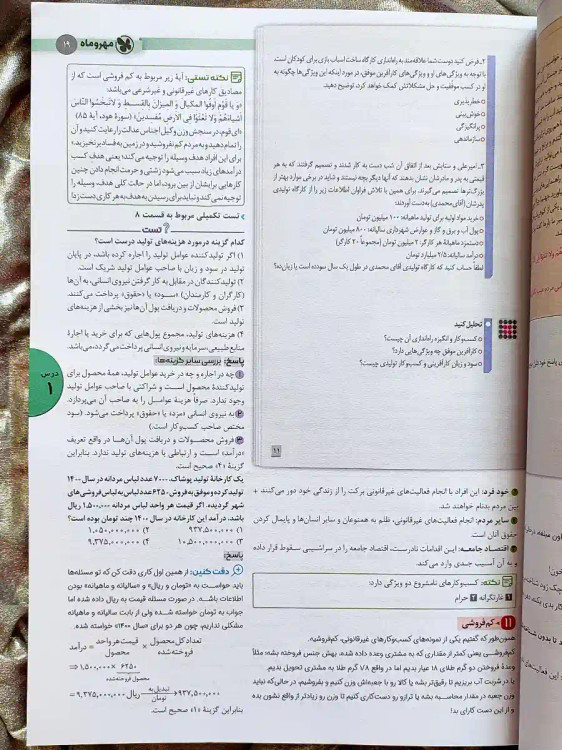 مهروماه
۱۹
۲_فرض کنید دوست شما علاقه‌مند به راه‌اندازی کارگاه ساخت اسباب بازی برای کودکان است.
با توجه به ویژگی‌های او و ویژگی‌های کارآفرین موفق، در مورد اینکه این ویژگی‌ها چگونه به
او در کسب موفقیت و حل مشکلاتش کمک خواهد کرد، توضیح دهید.
خطرپذیری
خوش‌بینی
پرانگیزگی
سازماندهی
۳_امیرعلی و ستایش بعد از اتفاق آن شب دست به کار شدند و تصمیم گرفتند که به هر
قیمتی به پدر و مادرشان نشان بدهند که آنها دیگر بچه نیستند و شاید در برخی موارد بهتر از
بزرگ‌ترها تصمیم می‌گیرند. برای همین با تلاش فراوان اطلاعات زیر را از کارگاه تولیدی
پدرشان (آقای محمدی) به‌دست آوردند:
خرید مواد اولیه برای تولید ماهیانه: ۱۰۰ میلیون تومان
پول آب و برق و گاز و عوارض شهرداری سالیانه: ۸۰۰ میلیون تومان
دستمزد ماهیانهٔ هر کارگر: ۲ میلیون تومان (مجموعاً ۲۰ کارگر)
درآمد سالیانه: ۲/۵ میلیارد تومان
لطفاً حساب کنید که کارگاه تولیدی آقای محمدی در طول یک سال سودده است یا زیان‌ده؟
تحلیل کنید
کسب‌وکار و انگیزه راه‌اندازی آن چیست؟
کارآفرین موفق چه ویژگی‌هایی دارد؟
سود و زیان کارآفرینی و کسب‌وکار تولیدی چیست؟
۱۱
خود فرد: این افراد با انجام فعالیت‌های غیرقانونی برکت را از زندگی خود دور می‌کنند +
بین مردم بدنام خواهند شد.
سایر مردم: انجام فعالیت‌های غیرقانونی، ظلم به همنوعان و سایر انسان‌ها و پایمال کردن
حقوق آنان است.
اقتصاد جامعه: این اقدامات نادرست، اقتصاد جامعه را در سراشیبی سقوط قرار داده
و به آن آسیب جدی وارد می‌کند.
نکته: کسب‌وکارهای نامشروع دو ویژگی دارد:
۱ غارتگرانه ۲ حرام
۱۱ کم‌فروشی
همون‌طور که گفتیم یکی از نمونه‌های کسب‌وکارهای غیرقانونی، کم‌فروشیه.
کم‌فروشی یعنی کمتر از مقداری که به مشتری وعده داده شده، بهش جنس فروخته بشه؛ مثلاً
وعدهٔ فروختن دو گرم طلای ۱۸ عیار بدیم اما در واقع ۱/۸ گرم طلا به مشتری تحویل بدیم.
یا در شربت آب بریزیم تا رقیق‌تر بشه یا کالا رو با جعبه‌اش وزن کنیم و بفروشیم، در حالی‌که نباید
وزن جعبه در مقدار محاسبه بشه یا ترازو رو دست‌کاری کنیم تا وزن رو زیادتر از واقع نشون بده
و از این دست کارای بد!
نکته تستی: آیهٔ زیر مربوط به کم فروشی است که از
مصادیق کارهای غیرقانونی و غیرشرعی می‌باشد:
«وَ یا قَومِ أَوفُوا المِکیالَ وَ المیزانَ بِالقِسطِ وَ لا تَبخَسُوا النّاسَ
أَشیاءَهُم وَ لا تَعثَوا فِی الأَرضِ مُفسِدینَ» (سورهٔ هود، آیهٔ ۸۵)
«ای قوم، در سنجش وزن و کیل اجناس عدالت را رعایت کنید و آن
را تمام دهید و به مردم کم نفروشید و در زمین به فساد برنخیزید.»
برای این افراد هدف وسیله را توجیه می‌کند؛ یعنی هدف کسب
درآمدهای زیاد سبب می‌شود زشتی و حرمت انجام دادن چنین
کارهایی برایشان از بین برود، اما در حالت کلی هدف وسیله را
توجیه نمی‌کند و نباید برای رسیدن به هدف به هر کاری دست زد!
تست تکمیلی مربوط به قسمت ۸
تست
کدام گزینه در مورد هزینه‌های تولید درست است؟
۱) اگر تولیدکننده عوامل تولید را اجاره کرده باشد، در پایان
تولید در سود و زیان با صاحب عوامل تولید شریک است.
۲) تولیدکنندگان در مقابل به کار گرفتن نیروی انسانی، به آن‌ها
(کارگران و کارمندان) «سود» یا «حقوق» پرداخت می‌کنند.
۳) فروش محصولات و دریافت پول آن‌ها نیز بخشی از هزینه‌های
تولید است.
۴) هزینه‌های تولید، مجموع پول‌هایی که برای خرید یا اجارهٔ
منابع طبیعی، سرمایه و نیروی انسانی پرداخت می‌گردد، می‌باشد.
پاسخ: بررسی سایر گزینه‌ها:
۱ چه در اجاره و چه در خرید عوامل تولید، همهٔ محصول برای
تولیدکنندهٔ محصول است و شراکتی با صاحب عوامل تولید
وجود ندارد. صرفاً هزینهٔ عوامل را به صاحب آن می‌پردازد.
۲ به نیروی انسانی «مزد» یا «حقوق» پرداخت می‌شود. (سود
مختص صاحب کسب‌وکار است.)
۳ فروش محصولات و دریافت پول آن‌ها در واقع تعریف
«درآمد» است و ارتباطی با هزینه‌های تولید ندارد. بنابراین
گزینهٔ «۴» صحیح است.
یک کارخانهٔ تولید پوشاک، ۷۰۰۰ عدد لباس مردانه در سال ۱۴۰۰
تولید کرده و موفق به فروش ۶۲۵۰ عدد لباس به لباس فروشی‌های
شهر گردیده. اگر قیمت هر واحد لباس مردانه ۱,۵۰۰,۰۰۰ ریال
باشد، درآمد این کارخانه در سال ۱۴۰۰ چند تومان بوده است؟
۱) ۹۳۷,۵۰۰,۰۰۰ ۲) ۱,۰۵۰,۰۰۰,۰۰۰
۳) ۱۰,۵۰۰,۰۰۰,۰۰۰ ۴) ۹,۳۷۵,۰۰۰,۰۰۰
پاسخ:
دقت کنین: از همین اول کاری دقت کن که تو مسئله‌ها
باید حواست به «تومان و ریال» و «سالیانه و ماهیانه» بودن
اطلاعات باشه. در صورت مسئله قیمت به ریال داده شده اما
جواب به تومان خواسته شده ولی از بابت سالیانه و ماهیانه
مشکلی نداریم، چون هر دو برای «سال ۱۴۰۰» خواسته شده.
تعداد کل محصول فروخته‌شده × قیمت هر واحد محصول = درآمد
⇒ ۱,۵۰۰,۰۰۰ × ۶۲۵۰
محصول فروخته‌شده
= ۹,۳۷۵,۰۰۰,۰۰۰ ریال تبدیل به تومان ۹۳۷,۵۰۰,۰۰۰
بنابراین گزینهٔ «۱» صحیح است.
درس
۱